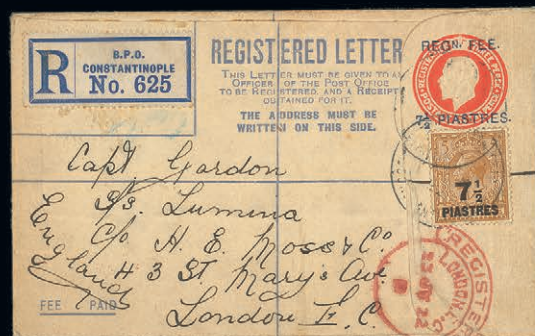 R
B.P.O.
CONSTANTINOPLE
No. 625
REGISTERED LETTER
THIS LETTER MUST BE GIVEN TO AN
OFFICER OF THE POST OFFICE
TO BE REGISTERED, AND A RECEIPT
OBTAINED FOR IT.
THE ADDRESS MUST BE
WRITTEN ON THIS SIDE.
REGN. FEE.
7½ PIASTRES.
7½
PIASTRES
Capt Gordon
S/s. Lumina
c/o H. E. Moss & Co
43 St. Mary's Av.
London E.C.
England
FEE PAID
REGISTERED
LONDON